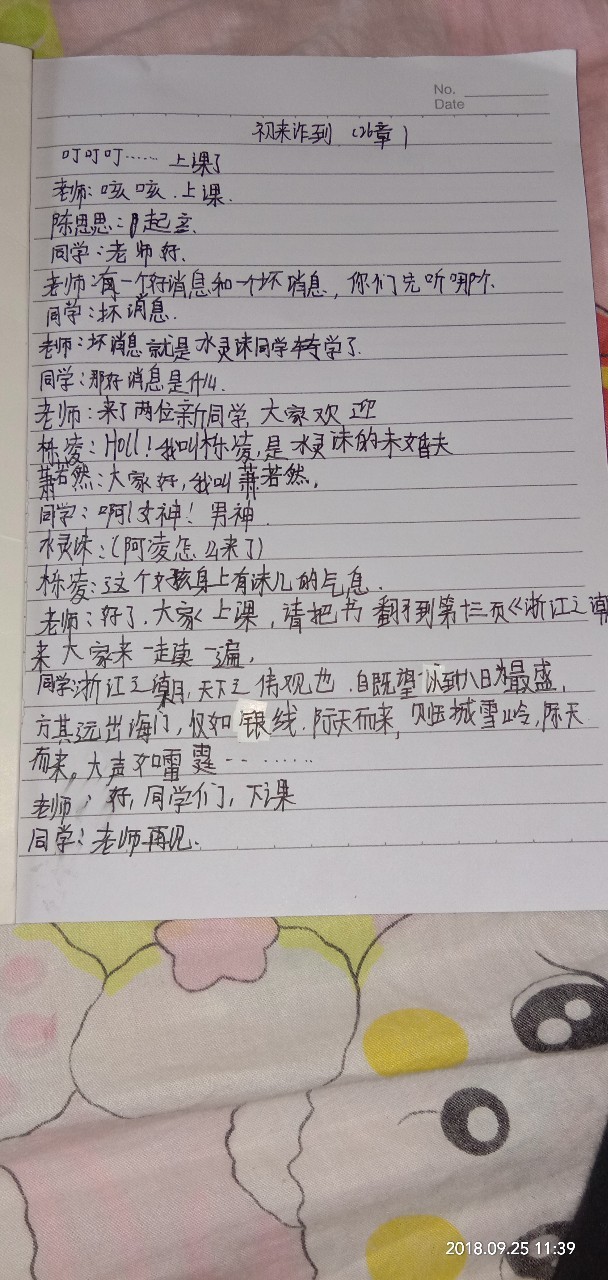 No.
Date
初来诈到 (26章)
叮叮叮…… 上课了
老师:咳咳.上课.
陈思思:起立.
同学:老师好.
老师:有一个好消息和一个坏消息,你们先听哪个.
同学:坏消息.
老师:坏消息就是水灵沫同学转学了.
同学:那好消息是什么.
老师:来了两位新同学,大家欢迎
栋凌:Holl!我叫栋凌,是水灵沫的未婚夫
萧若然:大家好,我叫萧若然,
同学:啊!女神!男神.
水灵沫:(阿凌怎么来了)
栋凌:这个女孩身上有沫儿的气息.
老师:好了.大家上课,请把书翻到第十三页《浙江之潮
来大家来一走读一遍,
同学:浙江之潮,天下之伟观也.自既望以到八日为最盛,
方其远出海门,仅如银线.际天而来,则玉城雪岭,际天
而来,大声如雷霆-- ……
老师:好,同学们,下课
同学:老师再见.
2018.09.25 11:39